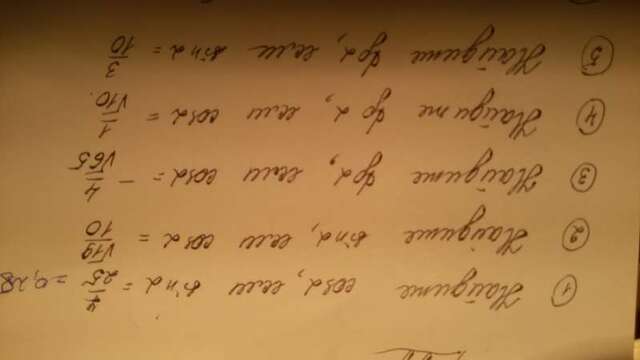 ① Найдите cosα, если sinα = 7/25 = 0,28
② Найдите sinα, если cosα = √19/10
③ Найдите tgα, если cosα = - 4/√65
④ Найдите tgα, если cosα = 1/√10.
⑤ Найдите tgα, если sinα = 3/10